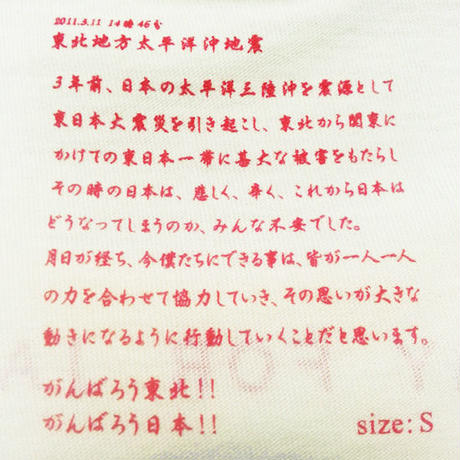 2011.3.11 14時46分
東北地方太平洋沖地震
3年前、日本の太平洋三陸沖を震源として
東日本大震災を引き起こし、東北から関東に
かけての東日本一帯に甚大な被害をもたらし
その時の日本は、悲しく、辛く、これから日本は
どうなってしまうのか、みんな不安でした。
月日が経ち、今僕たちにできる事は、皆が一人一人
の力を合わせて協力していき、その思いが大きな
動きになるように行動していくことだと思います。
がんばろう東北!!
がんばろう日本!!
size: S